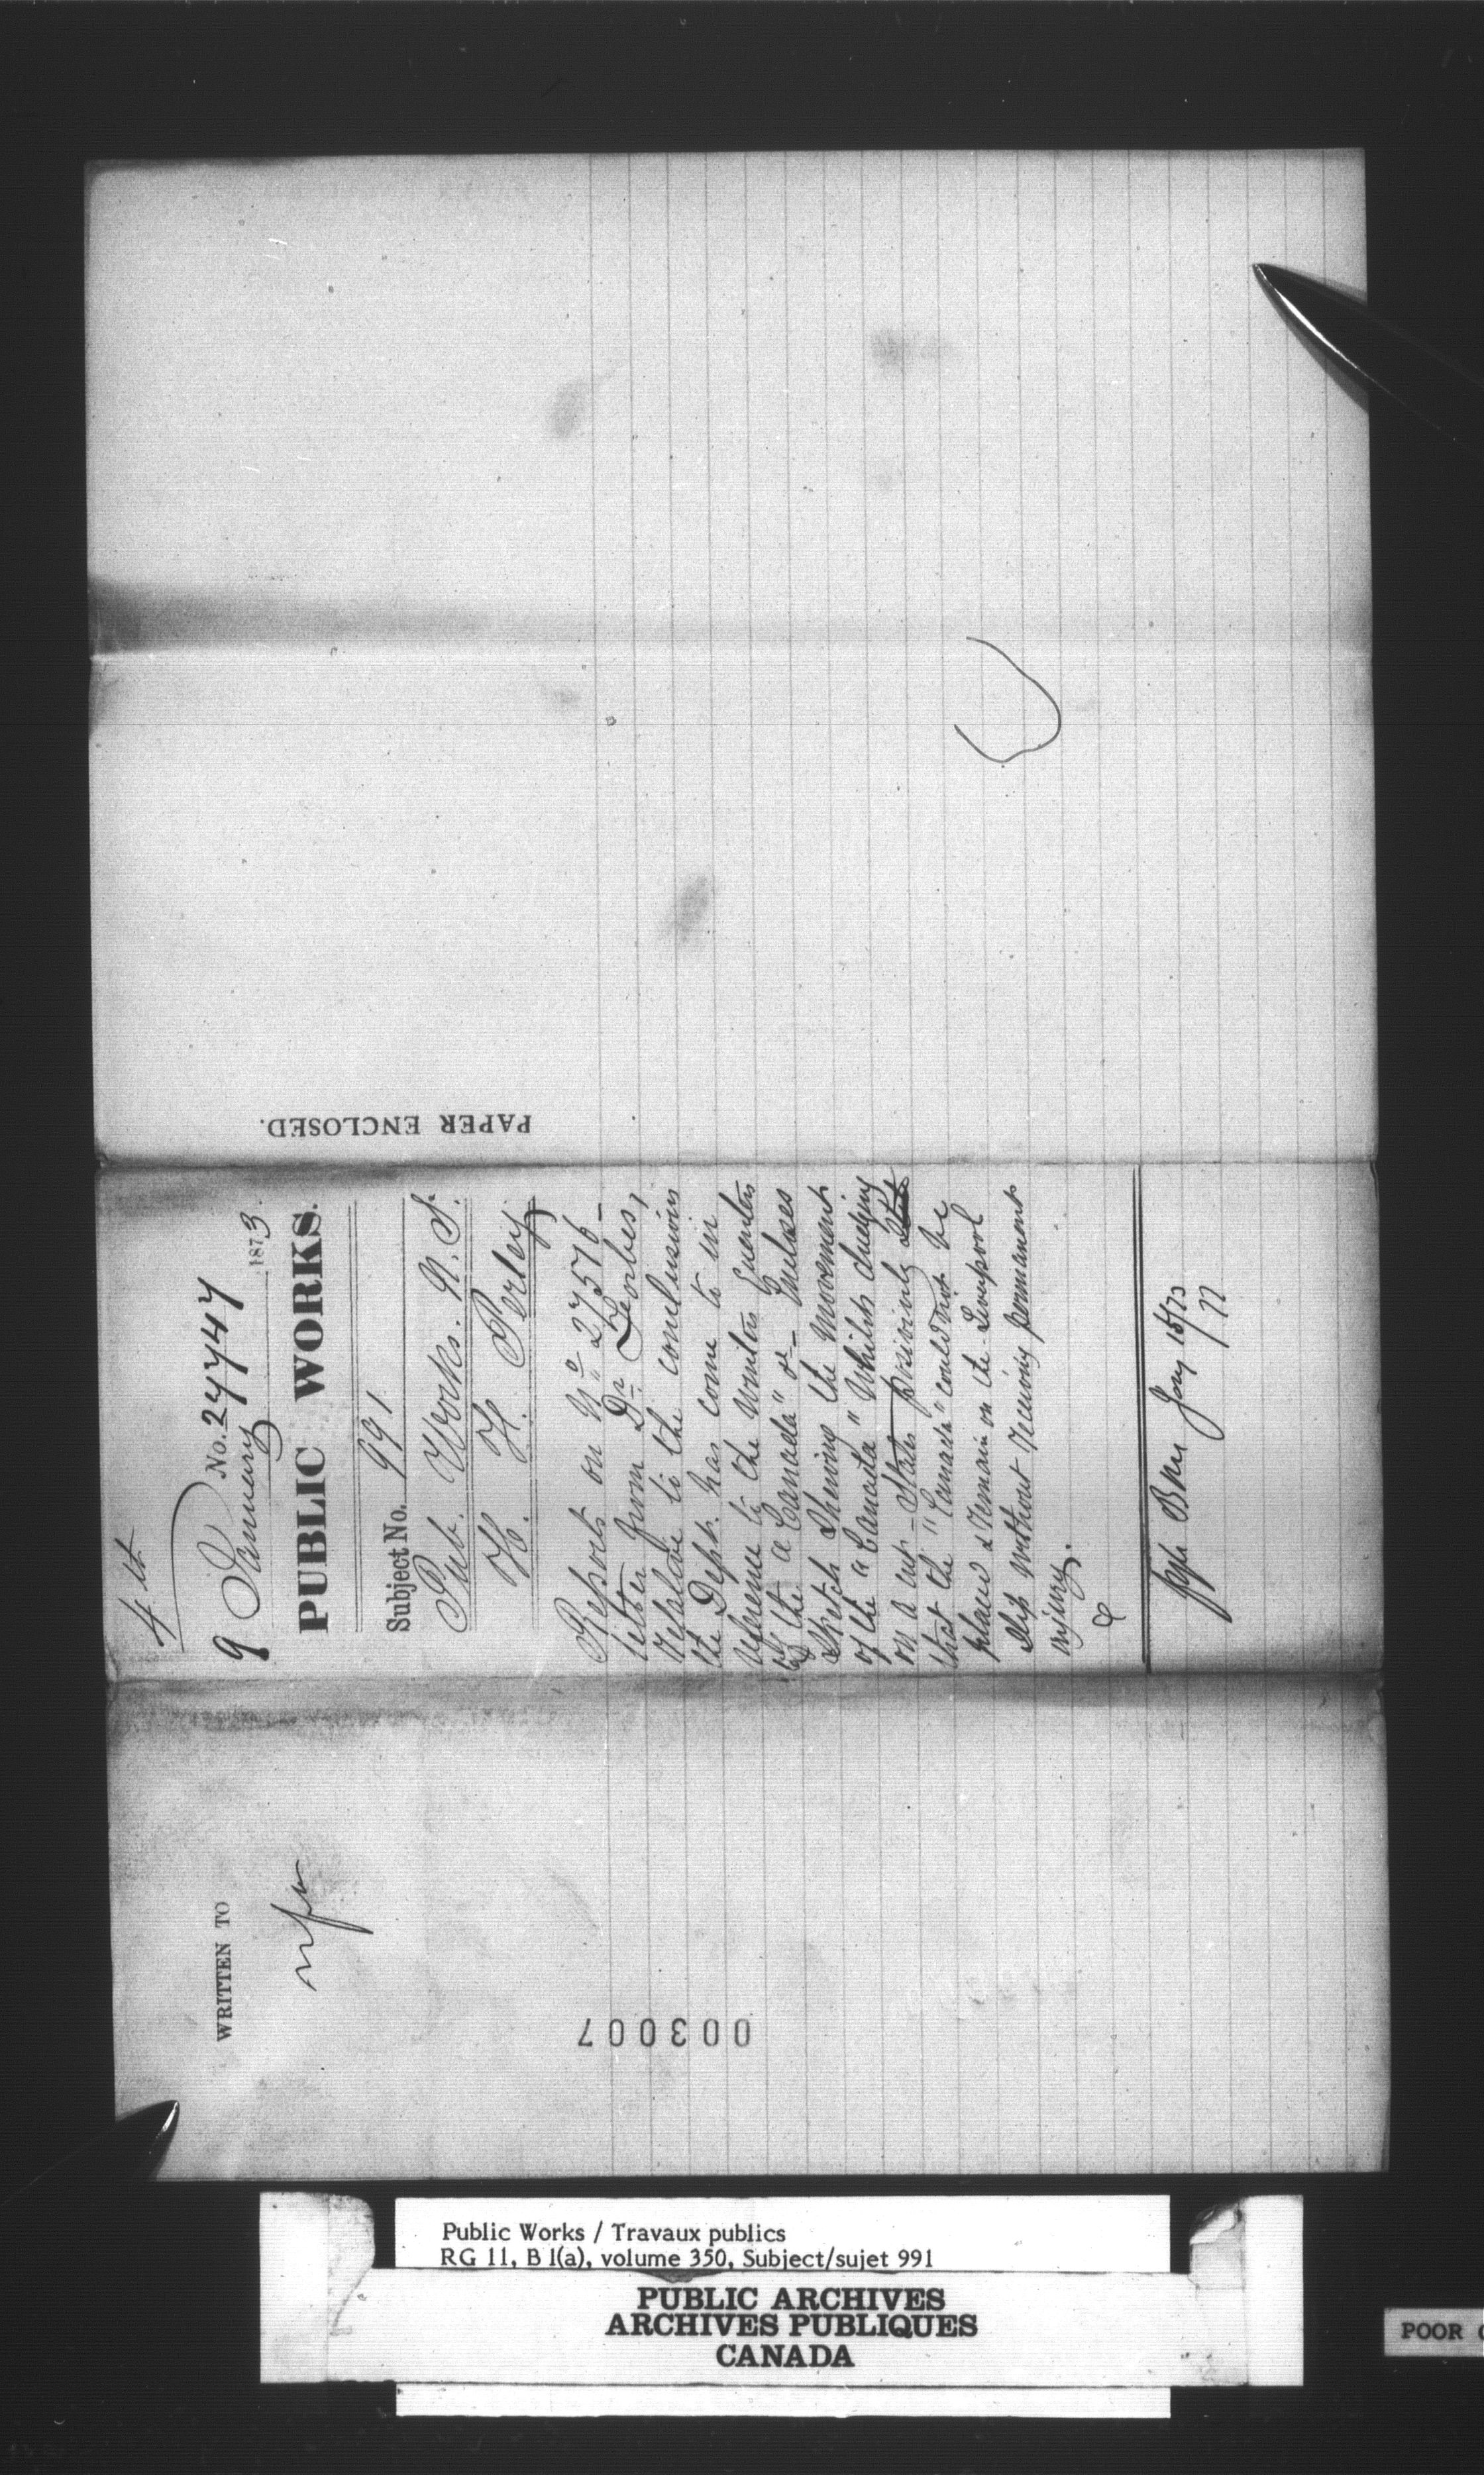 4 lt
No. 27747
9 January 1873.
PUBLIC WORKS.
Subject No. 991
Pub. Works. N. S.
H. H. Perley
Reports on No 27576 -
letter from Dr. Forbes,
relative to the conclusion
the Dept. has come to in
reference to the Winter Quarters
of the "Canada" & - Encloses
Sketch Shewing the Movement
of the "Canada" Whilst dredging
on a cut - States positively
that the "Canada" could not be
placed & remain on the Liverpool
Slip without receiving permanent
injury.
Jany 15/73
PAPER ENCLOSED.
WRITTEN TO
003007
Public Works / Travaux publics
RG 11, B 1(a), volume 350, Subject/sujet 991
PUBLIC ARCHIVES
ARCHIVES PUBLIQUES
CANADA
POOR